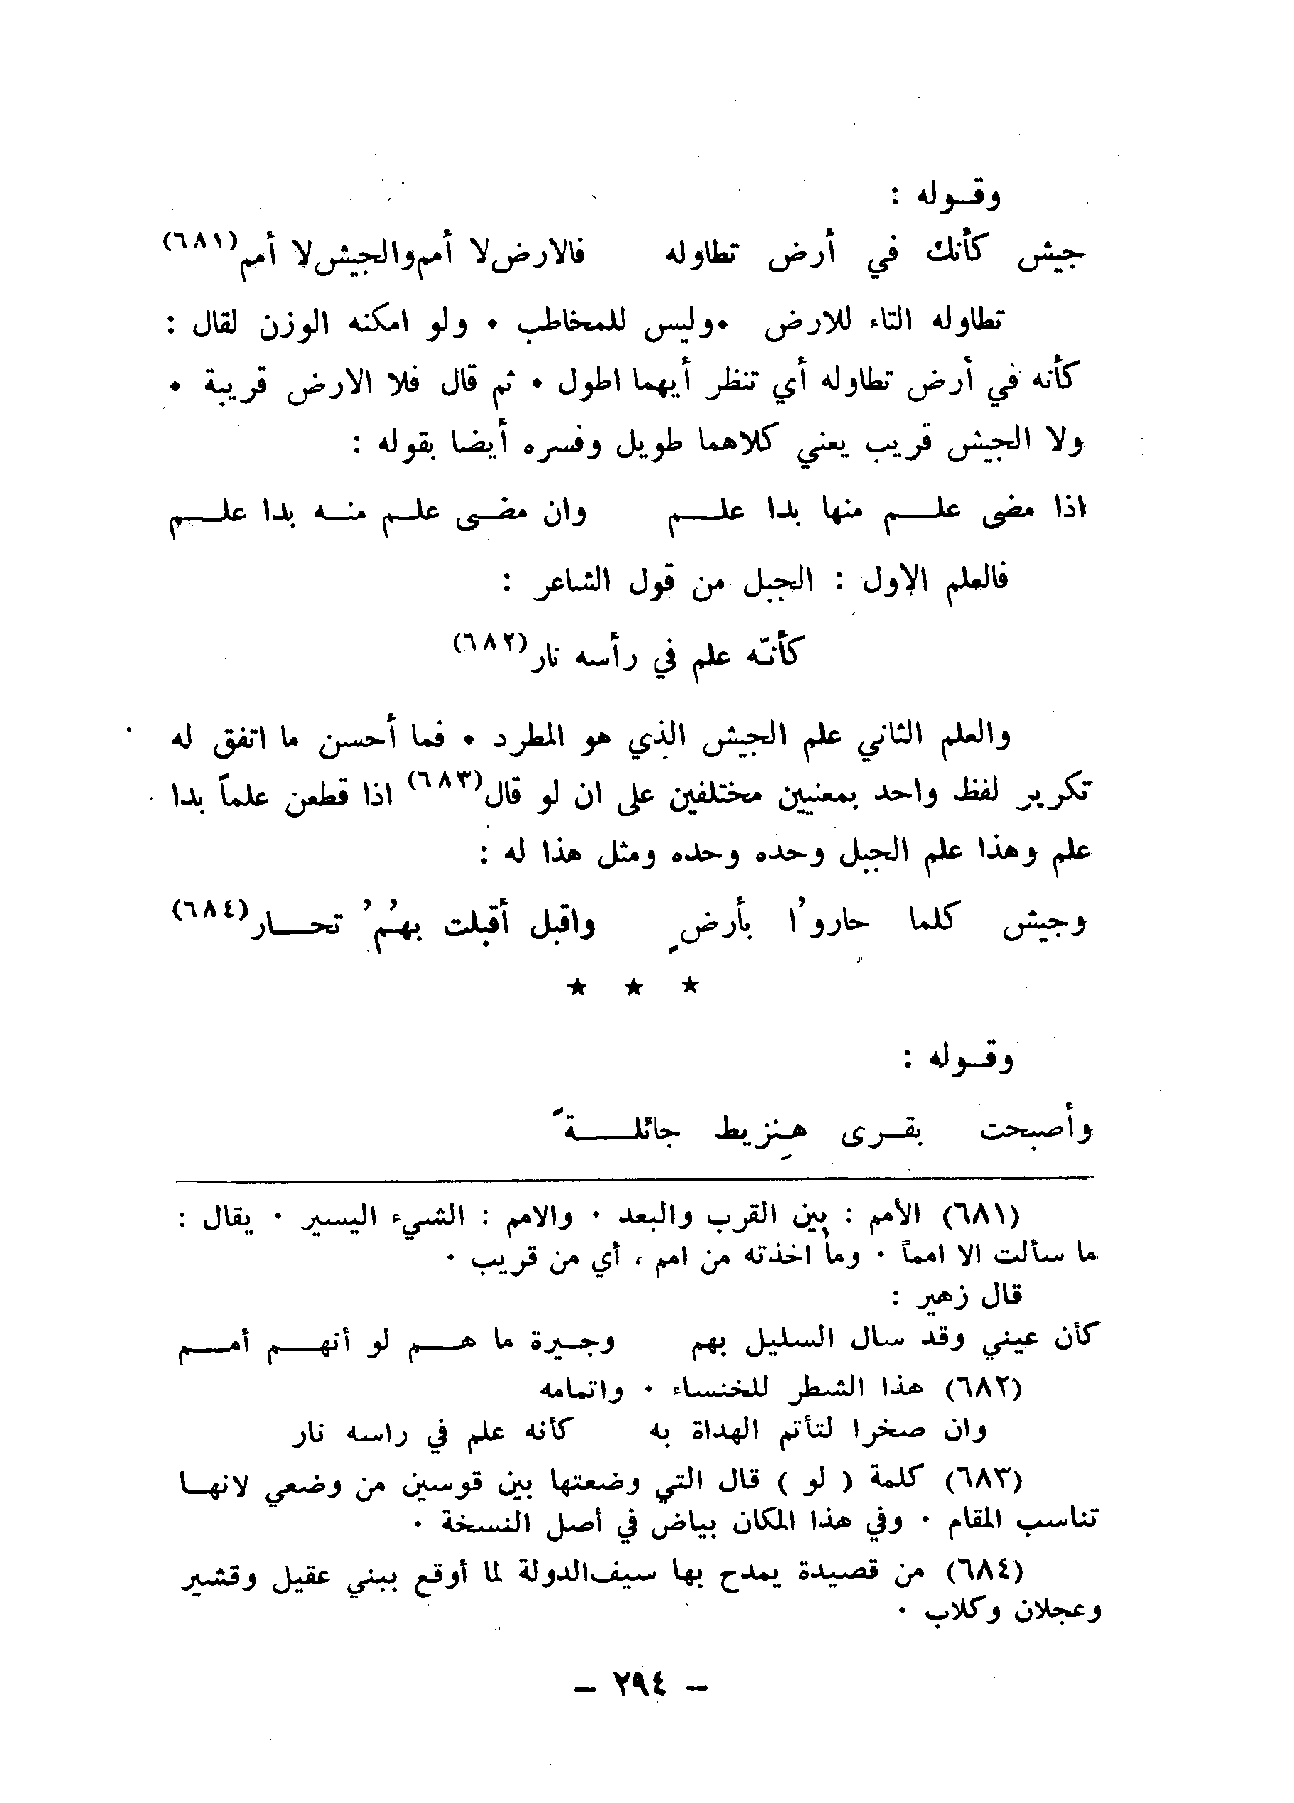 وقوله :
جيش كأنك في أرض تطاوله فالارض لا أمم والجيش لا أمم(٦٨١)
تطاوله التاء للارض ٠ وليس للمخاطب ٠ ولو امكنه الوزن لقال :
كأنه في أرض تطاوله أي تنظر أيهما اطول ٠ ثم قال فلا الارض قريبة ٠
ولا الجيش قريب يعني كلاهما طويل وفسره أيضا بقوله :
اذا مضى علم منها بدا علم وان مضى علم منه بدا علم
فالعلم الاول : الجبل من قول الشاعر :
كأنّه علم في رأسه نار(٦٨٢)
والعلم الثاني علم الجيش الذي هو المطرد ٠ فما أحسن ما اتفق له
تكرير لفظ واحد بمعنيين مختلفين على ان لو قال(٦٨٣) اذا قطعن علماً بدا
علم وهذا علم الجبل وحده وحده ومثل هذا له :
وجيش كلما حاروُا بأرضٍ واقبل أقبلت بهُمُ تحار(٦٨٤)
★ ★ ★
وقوله :
وأصبحت بقرى هِنزيط جائلةً
(٦٨١) الأمم : بين القرب والبعد ٠ والامم : الشيء اليسير ٠ يقال :
ما سألت الا امماً ٠ وما اخذته من امم ، أي من قريب ٠
قال زهير :
كأن عيني وقد سال السليل بهم وجيرة ما هم لو أنهم أمم
(٦٨٢) هذا الشطر للخنساء ٠ واتمامه
وان صخرا لتأتم الهداة به كأنه علم في راسه نار
(٦٨٣) كلمة ( لو ) قال التي وضعتها بين قوسين من وضعي لانها
تناسب المقام ٠ وفي هذا المكان بياض في أصل النسخة ٠
(٦٨٤) من قصيدة يمدح بها سيف الدولة لما أوقع ببني عقيل وقشير
وعجلان وكلاب ٠
– ٢٩٤ –